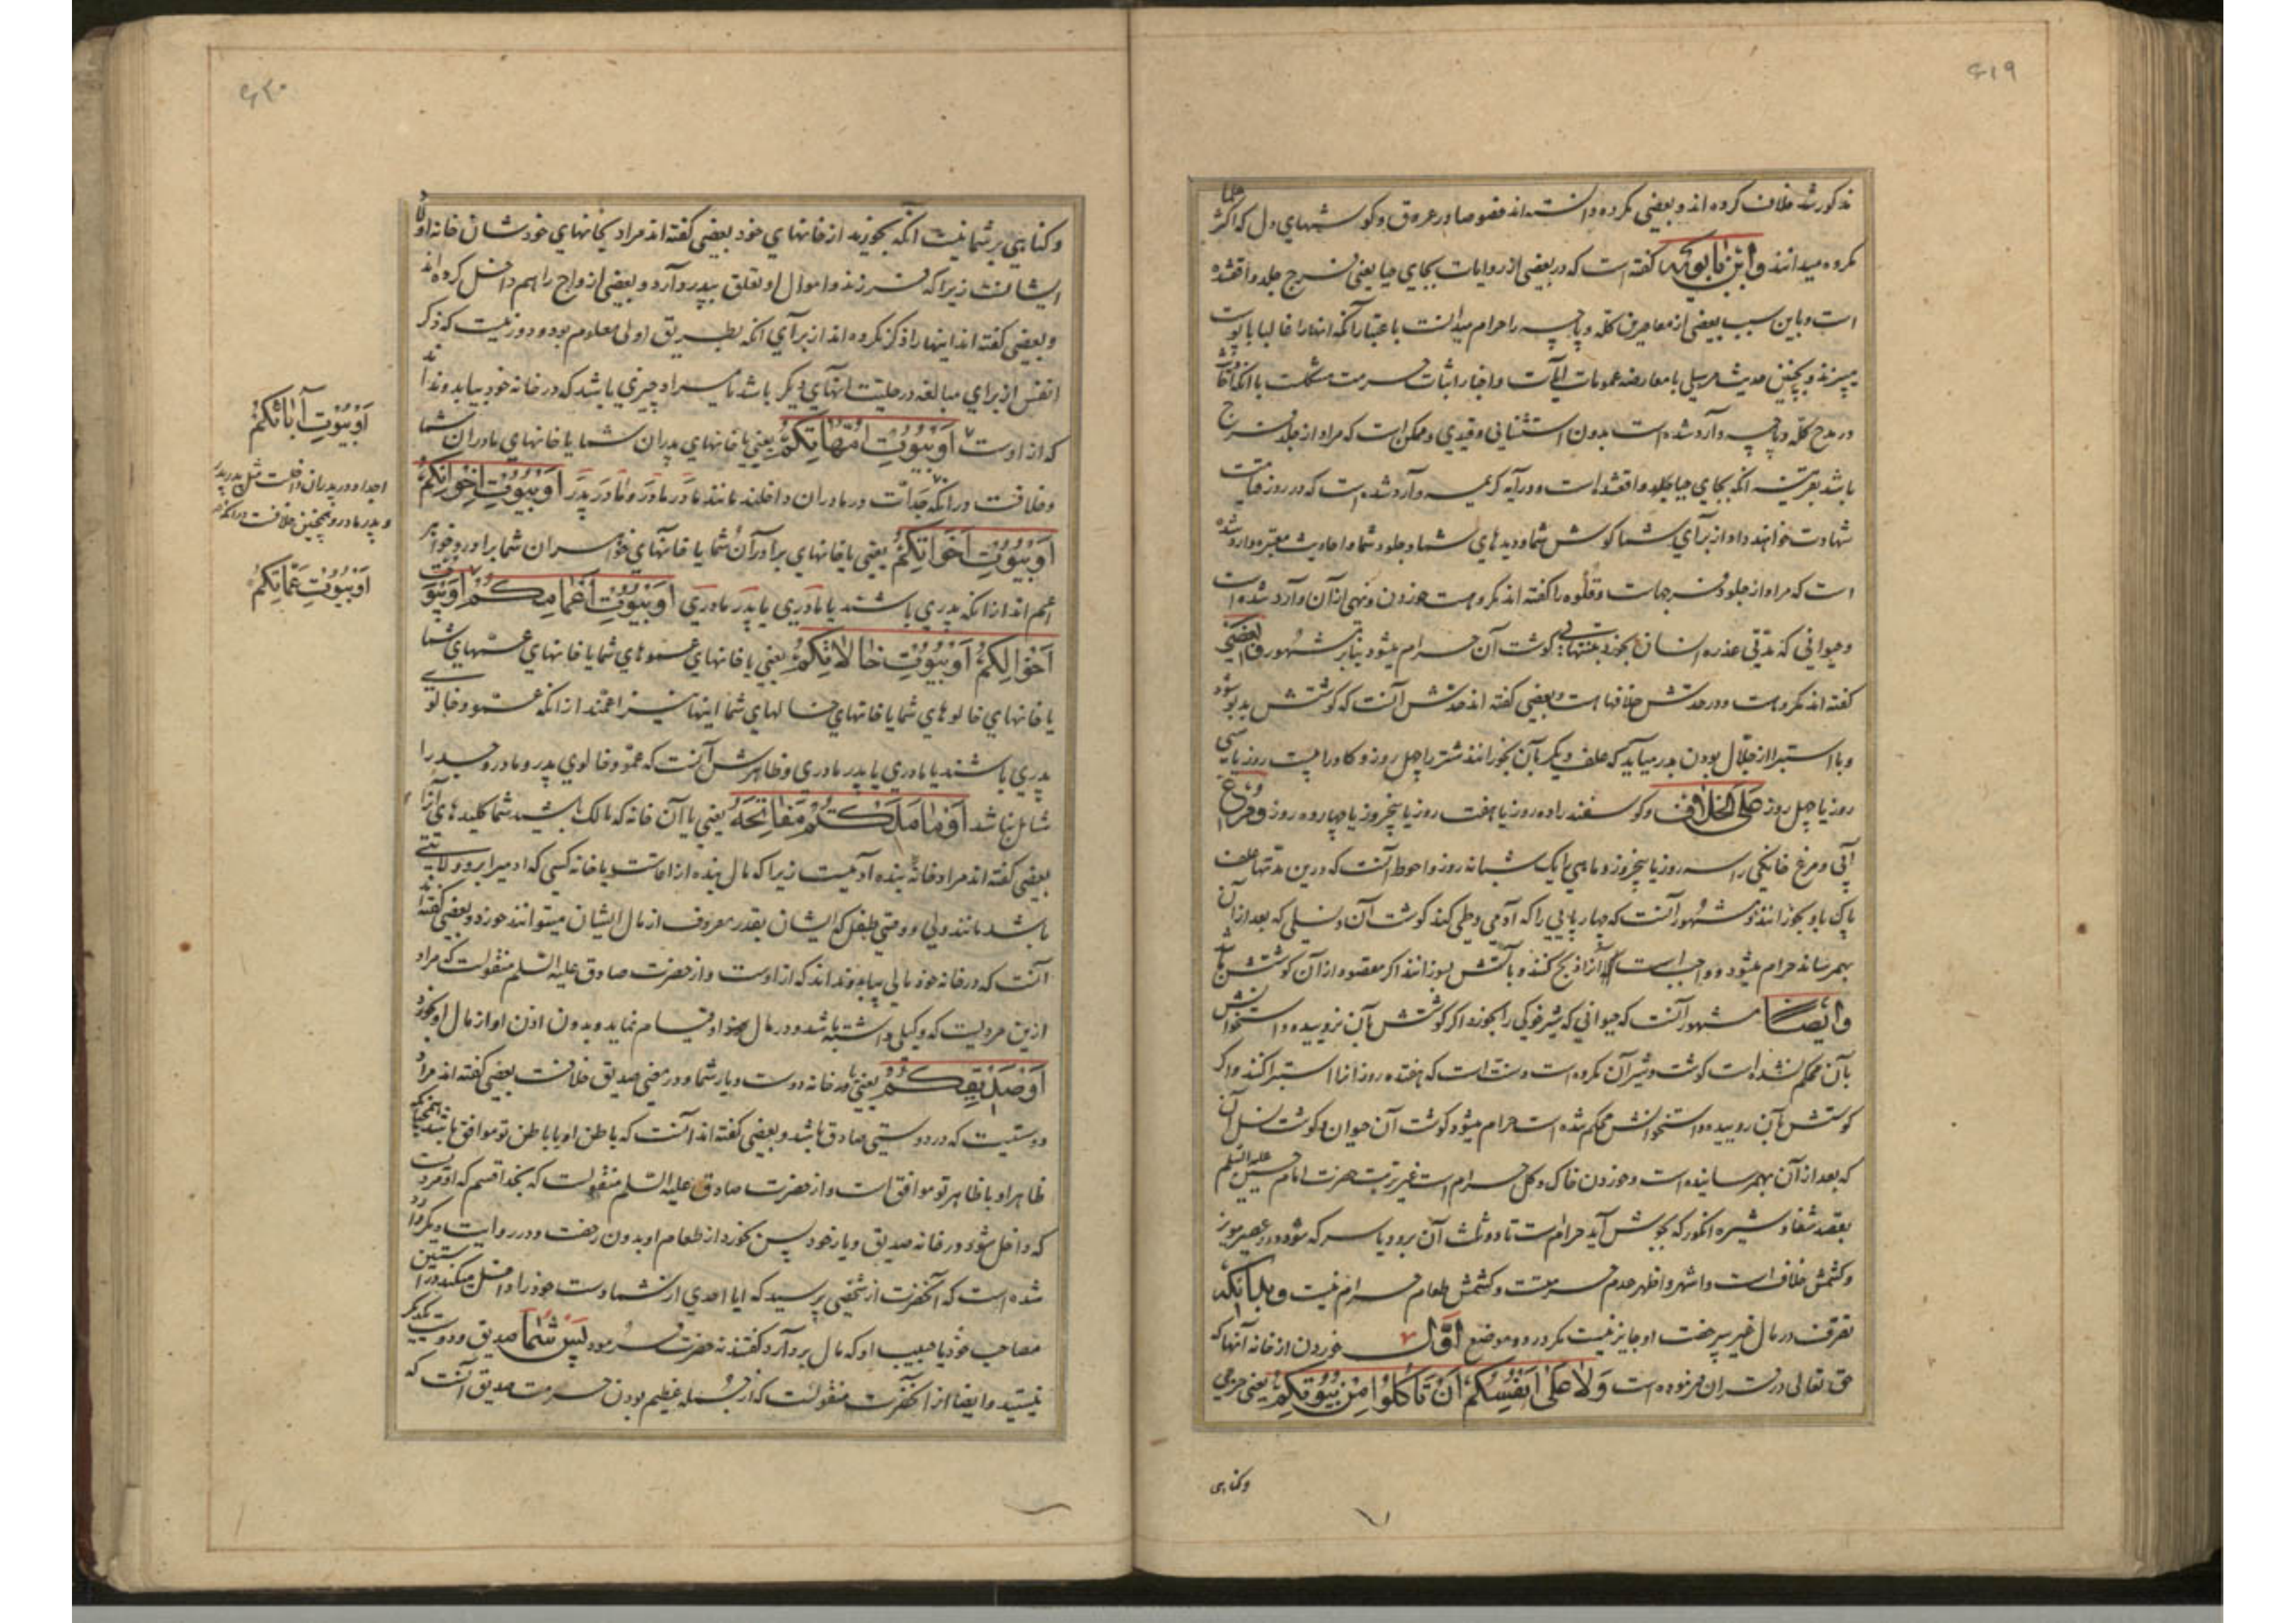 ۶۱۹
مذکور شد خلاف کرده اند و بعضی مکروه دانسته اند خصوصا در عروق و گوشهای دل که اکثر علما
مکروه میدانند و ابن بابویه گفته است که در بعضی از روایات بجای حیا یعنی فرج جلد واقعشده
است و باین سبب بعضی از معاصرین کله و پاچه را حرام میدانست باعتبار آنکه اینها را غالبا با پوست
میپزند و بچنین حدیث مرسلی با معارضه عمومات آیات و اخبار اثبات حرمت مشکلست با آنکه
در مدح کله و پاچه وارد شده است بدون استثنائی و قیدی و ممکن است که مراد از جلد فرج
باشد بقرینه آنکه بجای حیا جلد واقعشده است و در آیه کریمه وارد شده است که در روز قیامت
شهادت خواهند داد از برای شما گوش شما و دیدهای شما و جلود شما و احادیث معتبره وارد شده
است که مراد از جلود فرجهاست و قلوه را گفته اند مکروهست خوردن و نهی از آن وارد شده است
و حیوانی که مدتی عذره انسان بخورد بتنهایی گوشت آن حرام میشود بنابر مشهور و بعضی
گفته اند مکروهست و در حدش خلافها است و بعضی گفته اند حدش آنست که گوشتش بدبو شود
و با استبرا از جلال بودن بدر میآید که علف دیگر بآن بخورانند شتر را چهل روز و گاو را بیست روز یا سی
روز یا چهل روز علی الخلاف و گوسفند را ده روز یا هفت روز یا پنجروز یا چهارده روز و مرغ
آبی و مرغ خانگی را سه روز یا پنجروز و ماهی را یک شبانه روز و احوط آنست که درین مدتها علف
پاک باو بخورانند و مشهور آنست که چهارپایی را که آدمی وطی کند گوشت آن و نسلی که بعد از آن
بهم رساند حرام میشود و واجبست که آنرا ذبح کنند و بآتش بسوزانند اگر مقصود از آن گوشتش باشد
و ایضا مشهور آنست که حیوانی که شیر خوکی را بخورد اگر گوشتش بآن نروییده و استخوانش
بآن محکم نشده است گوشت و شیر آن مکروه است و سنت است که هفت روز آنرا استبرا کنند و اگر
گوشتش بآن روییده و استخوانش محکم شده است حرام میشود گوشت آن حیوان و گوشت نسل آن
که بعد از آن بهمرسانیده است و خوردن خاک و گل حرام است غیر تربت حضرت امام حسین علیه السلم
بقصد شفا و شیره انگور که بجوش آید حرامست تا دو ثلث آن برود یا سرکه شود و در عصیر مویز
و کشمش خلاف است و اشهر و اظهر عدم حرمتست و کشمش طعام حرام نیست و بدانکه
تصرف در مال غیر بیرخصت او جایز نیست مگر در دو موضع اول خوردن از خانه آنها که
حق تعالی در قران فرموده است وَلا عَلی اَنْفُسِکُمْ اَنْ تَأکُلُوا مِنْ بُیُوتِکُمْ یعنی حرجی
وگناهی
۶۲۰
وگناهی بر شما نیست آنکه بخورید از خانهای خود بعضی گفته اند مراد بخانهای خودشان خانه اولاد
ایشانست زیرا که فرزند و اموال او تعلق بپدر دارد و بعضی ازواج را هم داخل کرده اند
و بعضی گفته اند اینها را ذکر نکرده اند از برای آنکه بطریق اولی معلوم بود و دور نیست که ذکر
انفس از برای مبالغه در حلیت آنهای دیگر باشد یا مراد چیزی باشد که در خانه خود بیابد و نداند
که از اوست اَوْ بُیُوتِ اُمَّهاتِکُمْ یعنی یا خانهای پدران شما یا خانهای مادران شما
وخلافست در آنکه جدات در مادران داخلند مانند مادر مادر و مادر پدر اَوْ بُیُوتِ اِخْوانِکُمْ
اَوْ بُیُوتِ اَخَواتِکُمْ یعنی یا خانهای برادران شما یا خانهای خواهران شما برادر و خواهر
اعم اند از آنکه پدری باشند یا مادری یا پدر مادری اَوْ بُیُوتِ اَعْمامِکُمْ اَوْ بُیُوتِ
اَخْوالِکُمْ اَوْ بُیُوتِ خالاتِکُمْ یعنی یا خانهای عموهای شما یا خانهای عمهای شما
یا خانهای خالوهای شما یا خانهای خالهای شما اینها نیز اعمند از آنکه عمو و خالوی
پدری باشند یا مادری یا پدر مادری و ظاهرش آنست که عمو و خالوی پدر و مادر و جد را
شامل نباشد اَوْ ما مَلَکْتُمْ مَفاتِحَهُ یعنی یا آن خانه که مالک باشید شما کلیدهای آنرا
بعضی گفته اند مراد خانه بنده آدمیست زیرا که مال بنده از اقاست یا خانه کسی که آدمی را برو ولایتی
باشد مانند ولی و وصی طفل که ایشان بقدر معروف از مال ایشان میتوانند خورد و بعضی گفته اند
آنست که در خانه خود مالی بیابد و نداند که از اوست و از حضرت صادق علیه السلم منقولست که مراد
ازین مردیست که وکیلی داشته باشد و در مال او قیام نماید و بدون اذن او از مال او بخورد
اَوْ صَدیقِکُمْ یعنی یا در خانه دوست و یار شما و در معنی صدیق خلافست بعضی گفته اند مراد
دوستیست که در دوستی صادق باشد و بعضی گفته اند آنست که باطن او با باطن تو موافق باشد همچنانکه
ظاهر او با ظاهر تو موافق است و از حضرت صادق علیه السلم منقولست که بخدا قسم که او مردیست
که داخل شود در خانه صدیق و یار خود پس بخورد از طعام او بدون رخصت و در روایت دیگر وارد
شده است که آنحضرت از شخصی پرسید که ایا احدی از شما دست خود را داخل میکند در آستین
مصاحب خود یا جیب او که مال بردارد گفتند نه حضرت فرمود پس شما صدیق و دوست یکدیگر
نیستید و ایضا از آنحضرت منقولست که از جمله عظیم بودن حرمت صدیق آنست که
اَوْ بُیُوتِ آبائِکُمْ
اجداد در پدران داخلست مثل پدر پدر
و پدر مادر و همچنین خلافست در آنکه
اَوْ بُیُوتِ عَمّاتِکُمْ